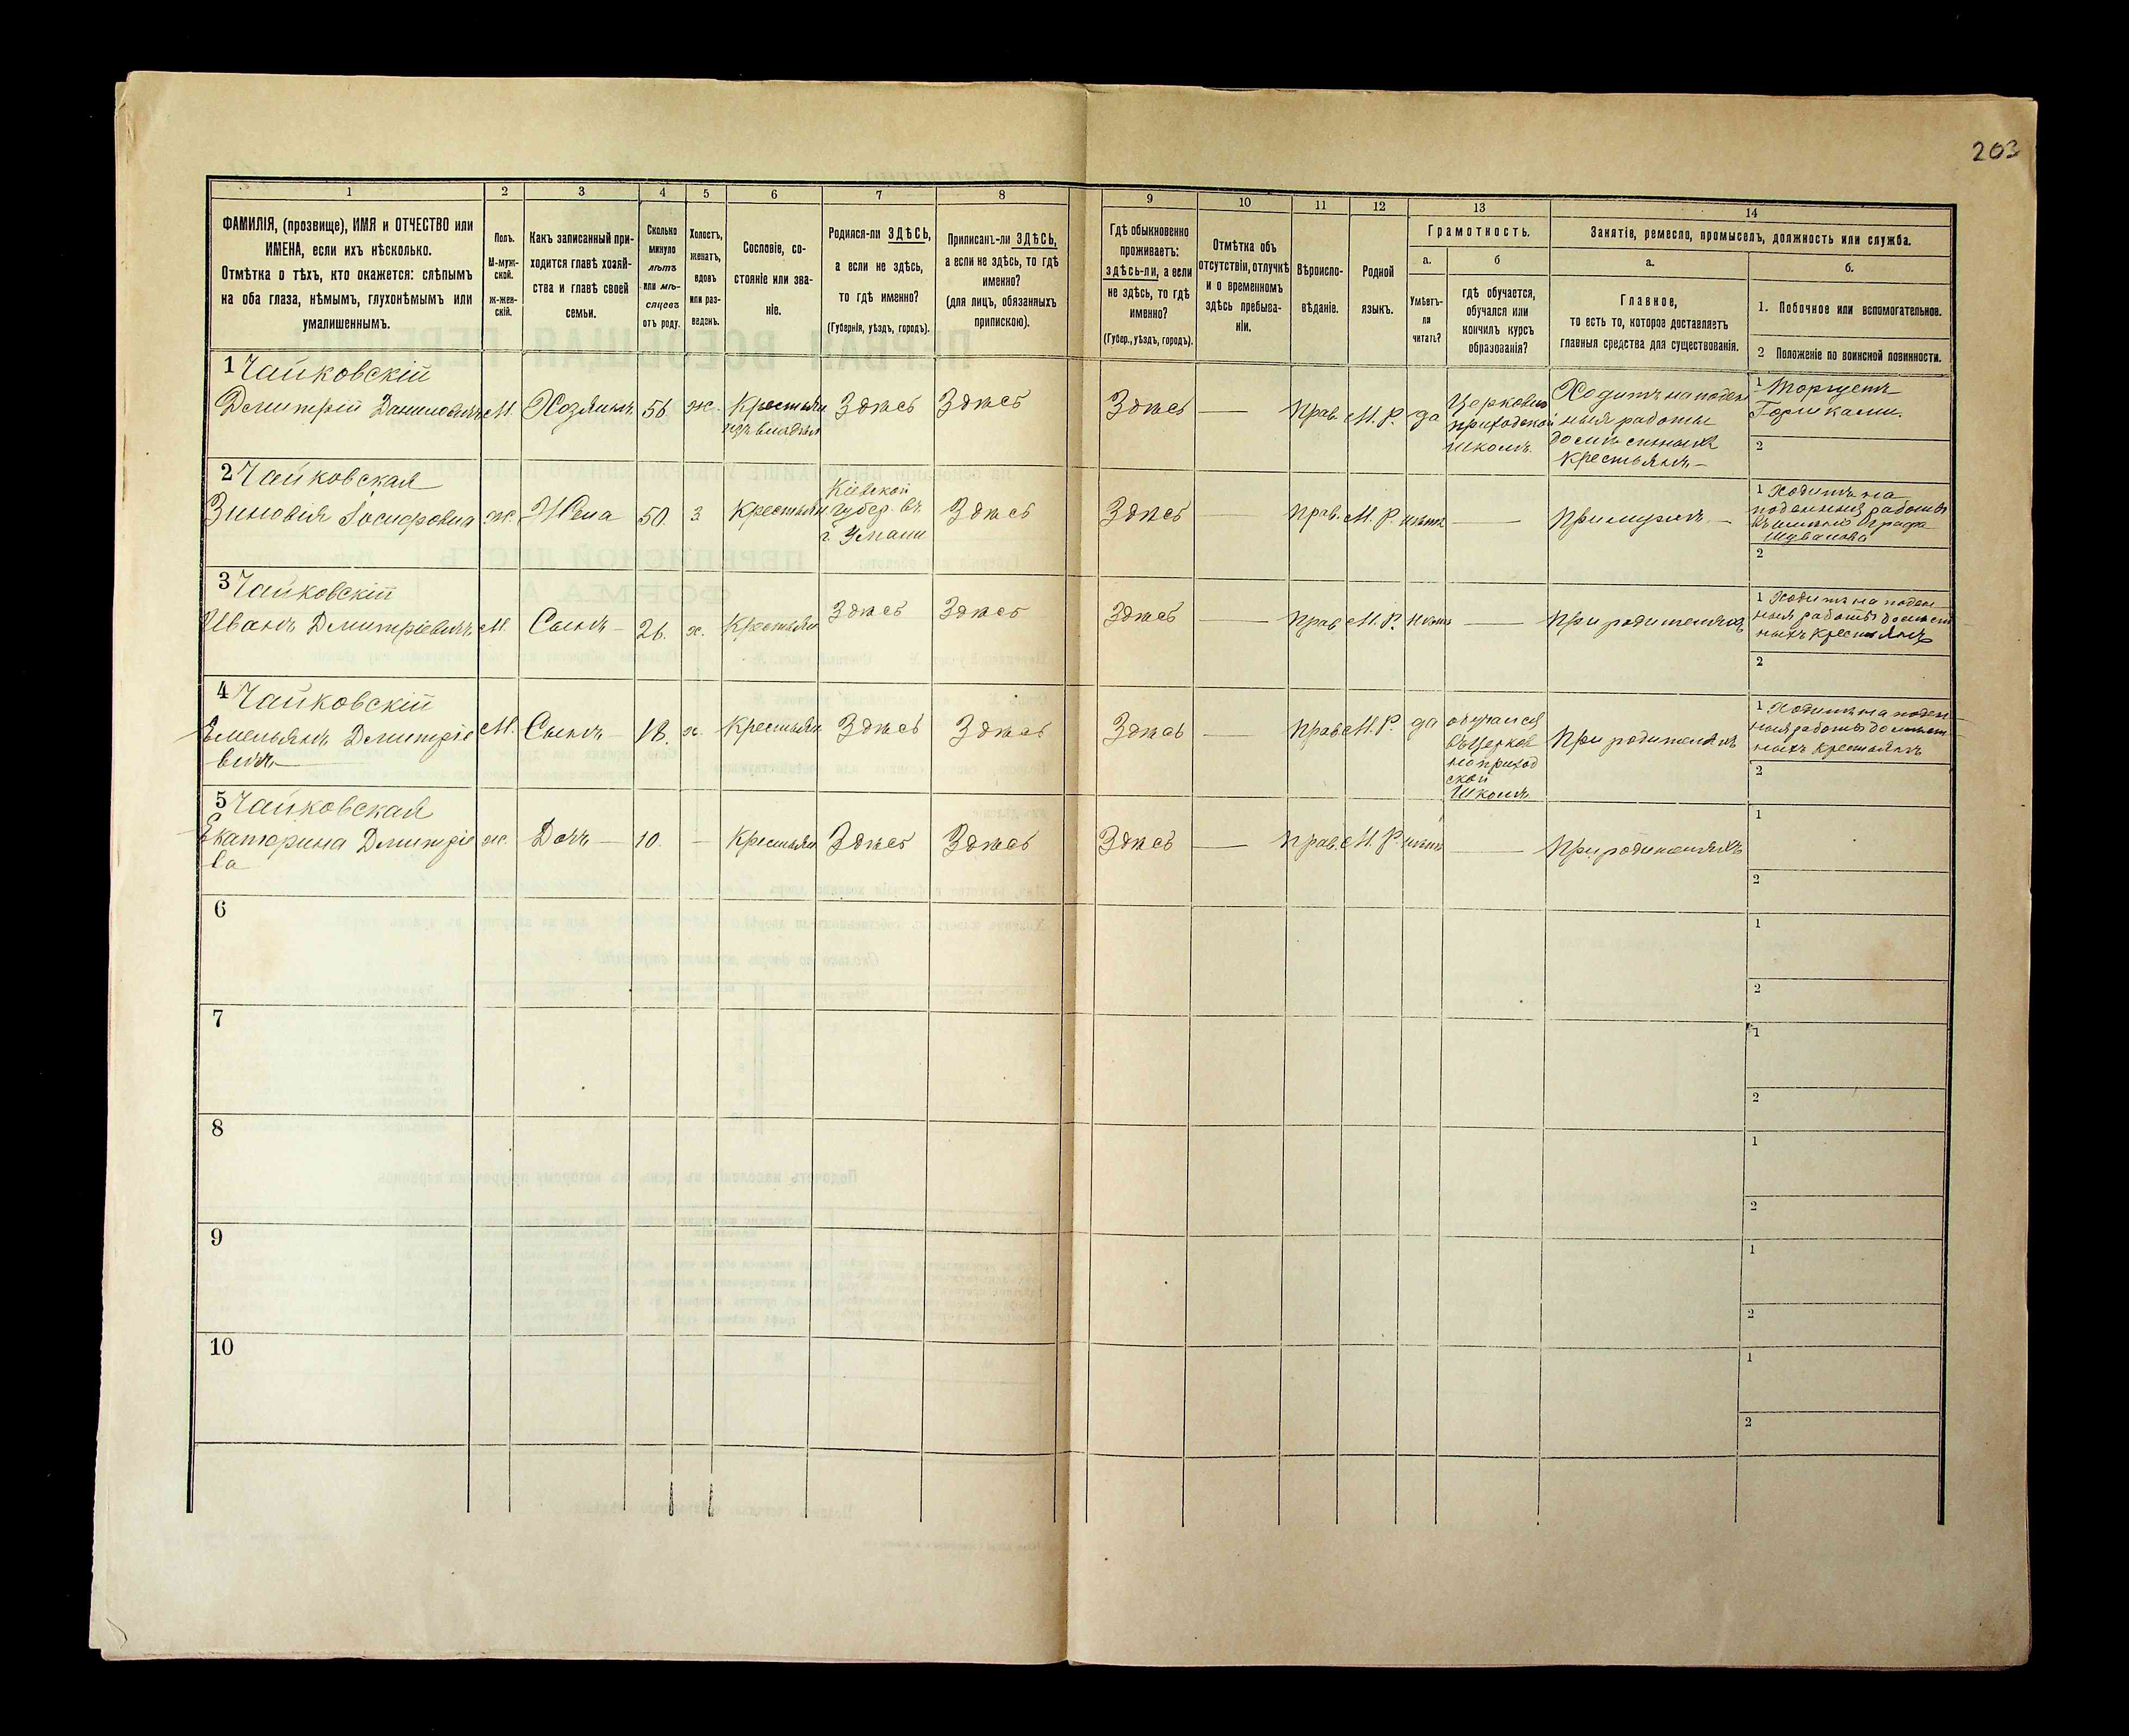 203
1 2 3 4 5 6 7 8 9 10 11 12 13 14
ФАМИЛІЯ, (прозвище), ИМЯ и ОТЧЕСТВО или
ИМЕНА, если ихъ нѣсколько.
Отмѣтка о тѣхъ, кто окажется: слѣпымъ
на оба глаза, нѣмымъ, глухонѣмымъ или
умалишеннымъ.
Полъ.
М-муж-
ской.
ж-жен-
скій.
Какъ записанный при-
ходится главѣ хозяй-
ства и главѣ своей
семьи.
Сколько
минуло
лѣтъ
или мѣ-
сяцевъ
отъ роду.
Холостъ,
женатъ,
вдовъ
или раз-
веденъ.
Сословіе, со-
стояніе или зва-
ніе.
Родился-ли ЗДѢСЬ,
а если не здѣсь,
то гдѣ именно?
(Губернія, уѣздъ, городъ).
Приписанъ-ли ЗДѢСЬ,
а если не здѣсь, то гдѣ
именно?
(для лицъ, обязанныхъ
припискою).
Гдѣ обыкновенно
проживаетъ:
здѣсь-ли, а если
не здѣсь, то гдѣ
именно?
(Губер., уѣздъ, городъ).
Отмѣтка объ
отсутствіи, отлучкѣ
и о временномъ
здѣсь пребыва-
ніи.
Вѣроиспо-
вѣданіе.
Родной
языкъ.
Грамотность.
а.
Умѣетъ-
ли
читать?
б
гдѣ обучается,
обучался или
кончилъ курсъ
образованія?
Занятіе, ремесло, промыселъ, должность или служба.
а.
Главное,
то есть то, которое доставляетъ
главныя средства для существованія.
б.
1. Побочное или вспомогательное.
2 Положеніе по воинской повинности.
1 Чайковскій
Дмитрій Даниловичъ
М.
Хозяинъ
56
ж.
Крестьян
изъ владѣл
Здѣсь
Здѣсь
Здѣсь
—
прав.
М. Р.
да
Церковно
приходской
школѣ
Ходитъ на поден
ныя работы
крестьянъ —
1 Торгуетъ
Горшками.
2
2 Чайковская
Зиновія Іосифовна
ж.
Жена
50.
з.
Крестьян
Кіевской
губер. въ
г. Умани
Здѣсь
Здѣсь
—
прав.
М. Р.
нѣтъ
—
при мужѣ. —
1 Ходитъ на
поденныя работы
въ имѣніе графа
Шувалова
2
3 Чайковскій
Иванъ Дмитріевичъ
М.
Сынъ —
26.
х.
Крестьян
Здѣсь
Здѣсь
Здѣсь
—
прав
М. Р.
нѣтъ
—
при родителяхъ
1 Ходитъ на поден
ныя работы
ныхъ крестьянъ
2
4 Чайковскій
Емельянъ Дмитріе
вичъ
М.
Сынъ —
18.
х.
Крестьян
Здѣсь
Здѣсь
Здѣсь
—
прав
М. Р.
да
обучался
въ церков
но приход
ской
школѣ
при родителяхъ
1 Ходитъ на поден
ныя работы
ныхъ крестьянъ
2
5 Чайковская
Екатерина Дмитріе
ва
ж.
Дочь —
10.
—
Крестьян
Здѣсь
Здѣсь
Здѣсь
—
прав.
М. Р.
нѣтъ
—
при родителяхъ
1
2
6
1
2
7
1
2
8
1
2
9
1
2
10
1
2